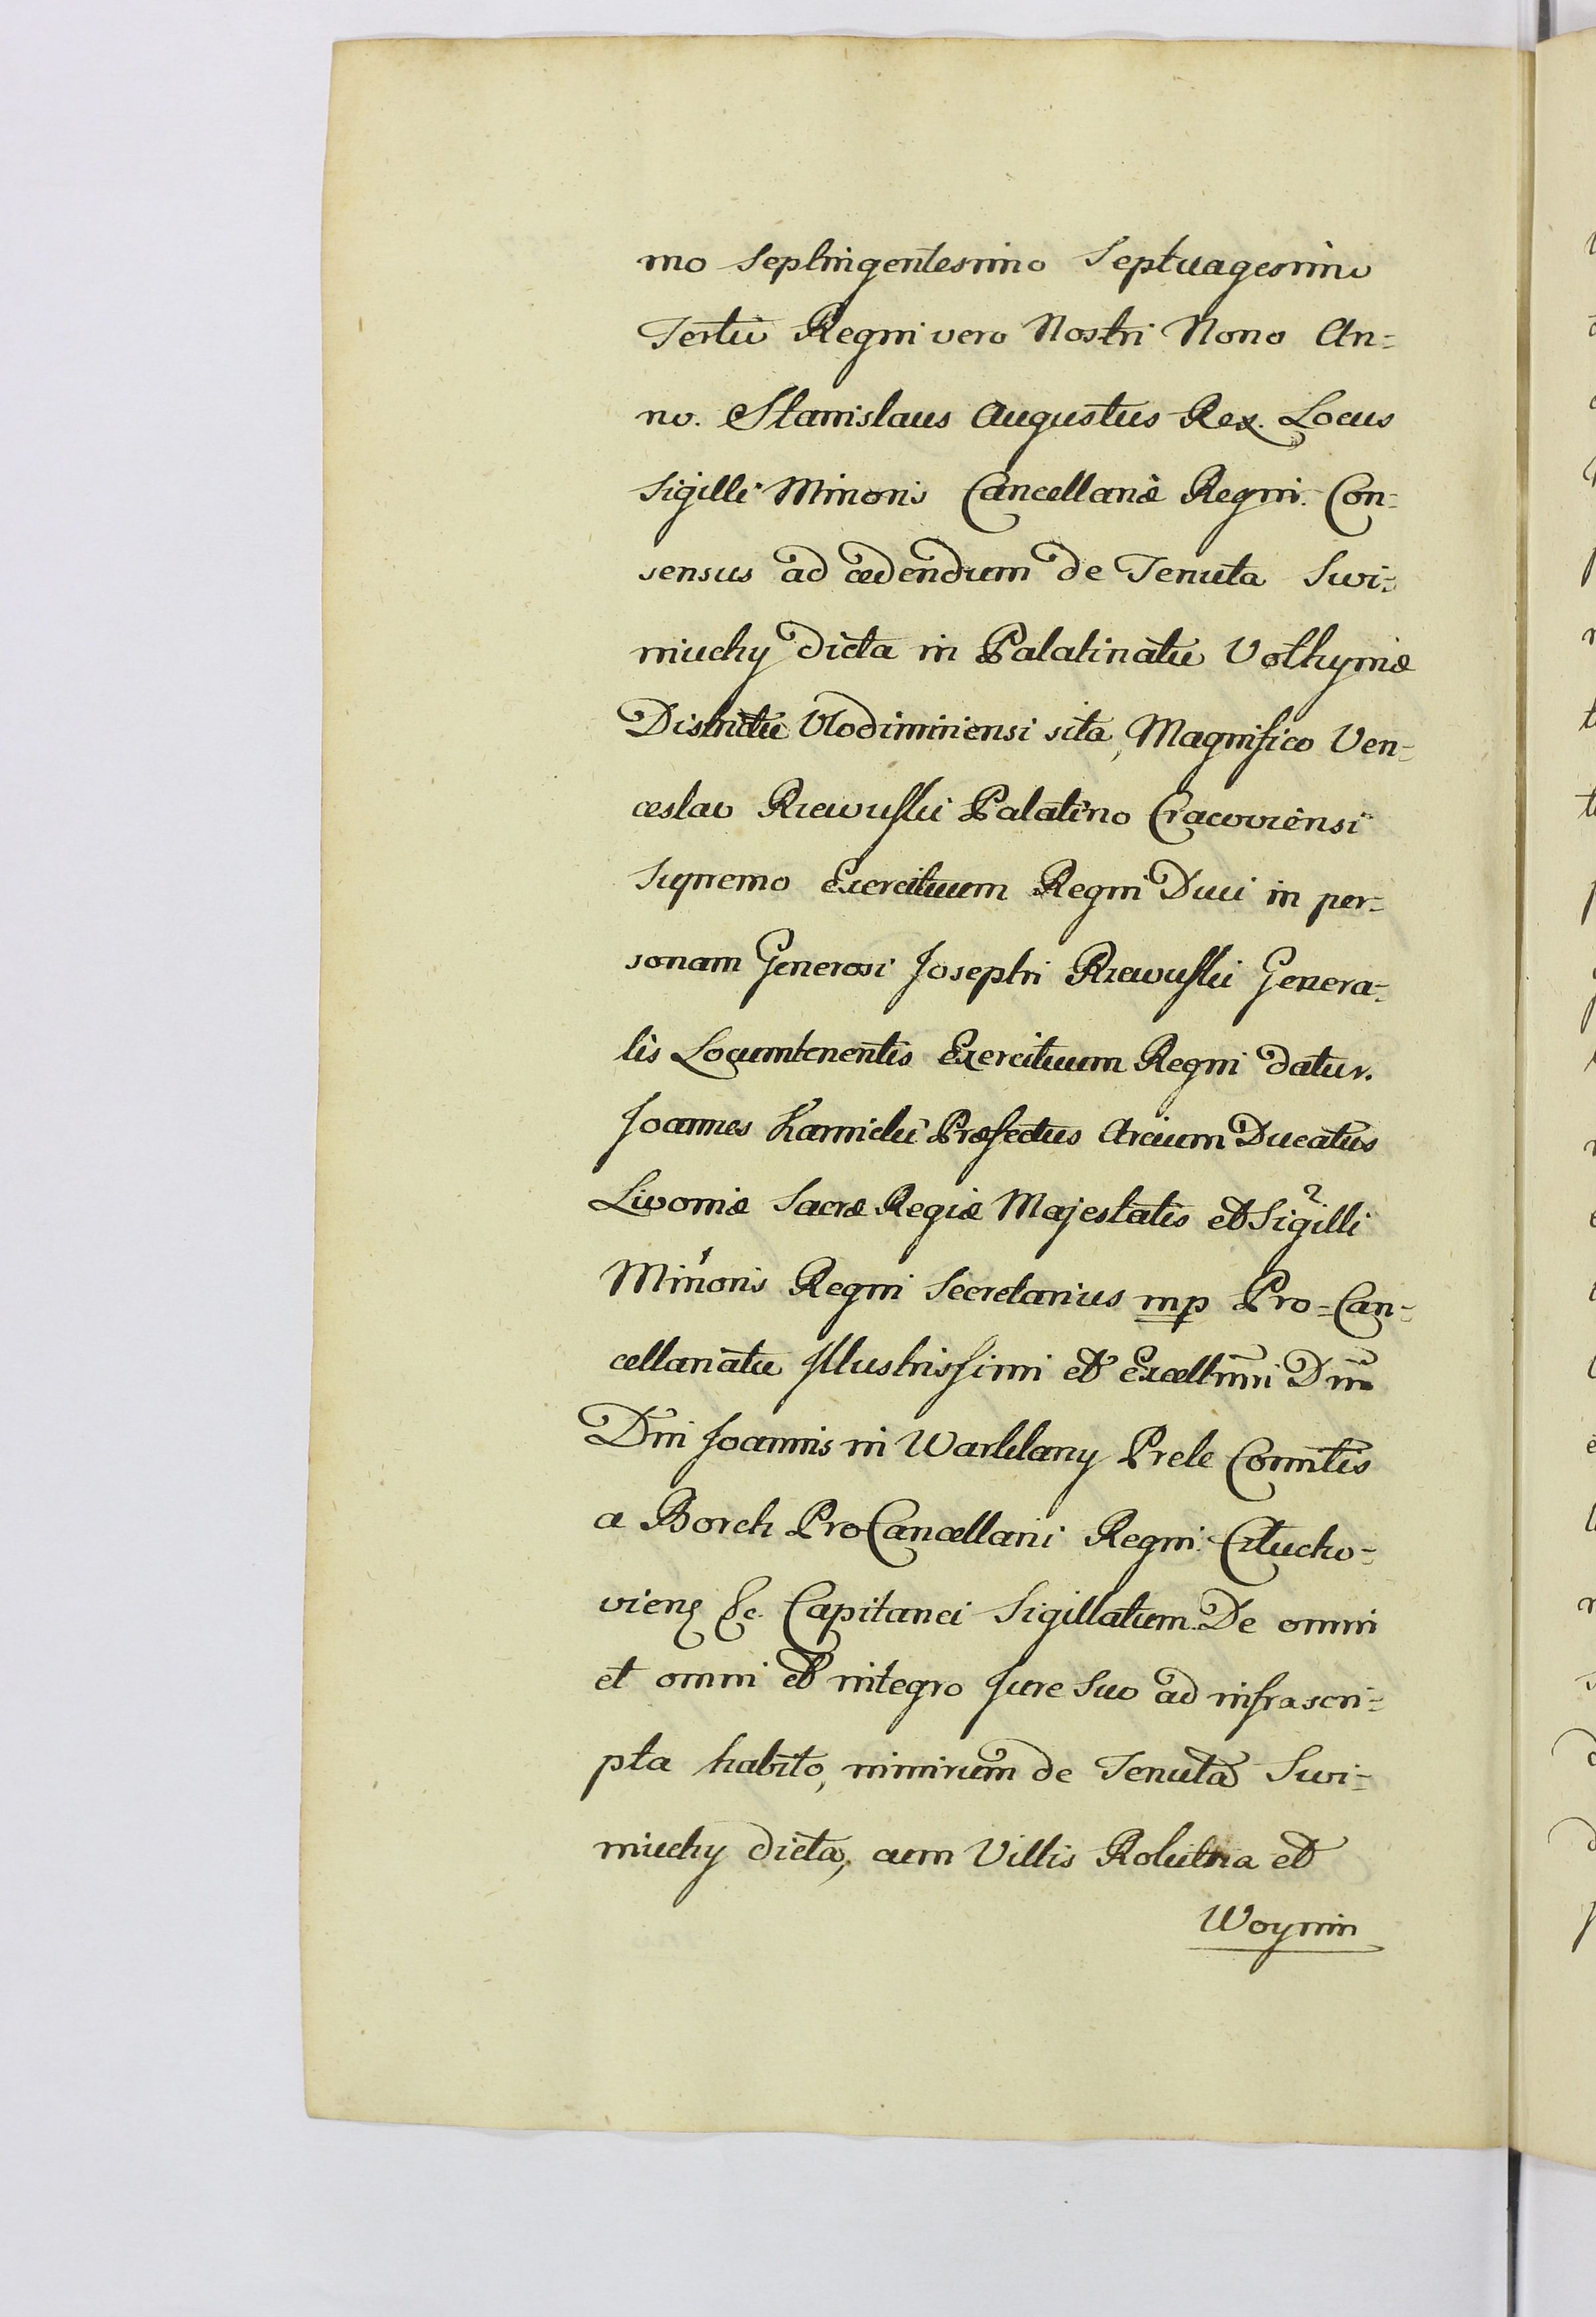 mo Septingentesimo Septuagesimo
Tertio Regni vero Nostri Nono An=
no. Stanislaus Augustus Rex. Locus
Sigilli Minoris Cancellariæ Regni. Con=
sensus ad cedendum de Tenuta Swi=
niuchy dicta in Palatinatu Volhyniæ
Districtu Vlodimiriensi sita, Magnifico Ven=
ceslao Rzewuski Palatino Cracoviensi
Supremo Exercituum Regni Duci in per=
sonam Generosi Josephi Rzewuski Genera=
lis Locumtenentis Exercituum Regni datur.
Joannes Kamicki Præfectus Arcium Ducatus
Livoniæ Sacræ Regiæ Majestatis et Sigilli
Minoris Regni Secretarius mp Pro=Can=
cellariatu Jllustrissimi et Excellmi Dni
Dni Joannis in Warklany Prele Comitis
a Borch ProCancellarii Regni Człucho=
viens &c. Capitanei Sigillatum. De omni
et omni et integro Jure Suo ad infrascri=
pta habito, nimirum de Tenuta Swi=
niuchy dicta, cum Villis Kokutna et
Woynin